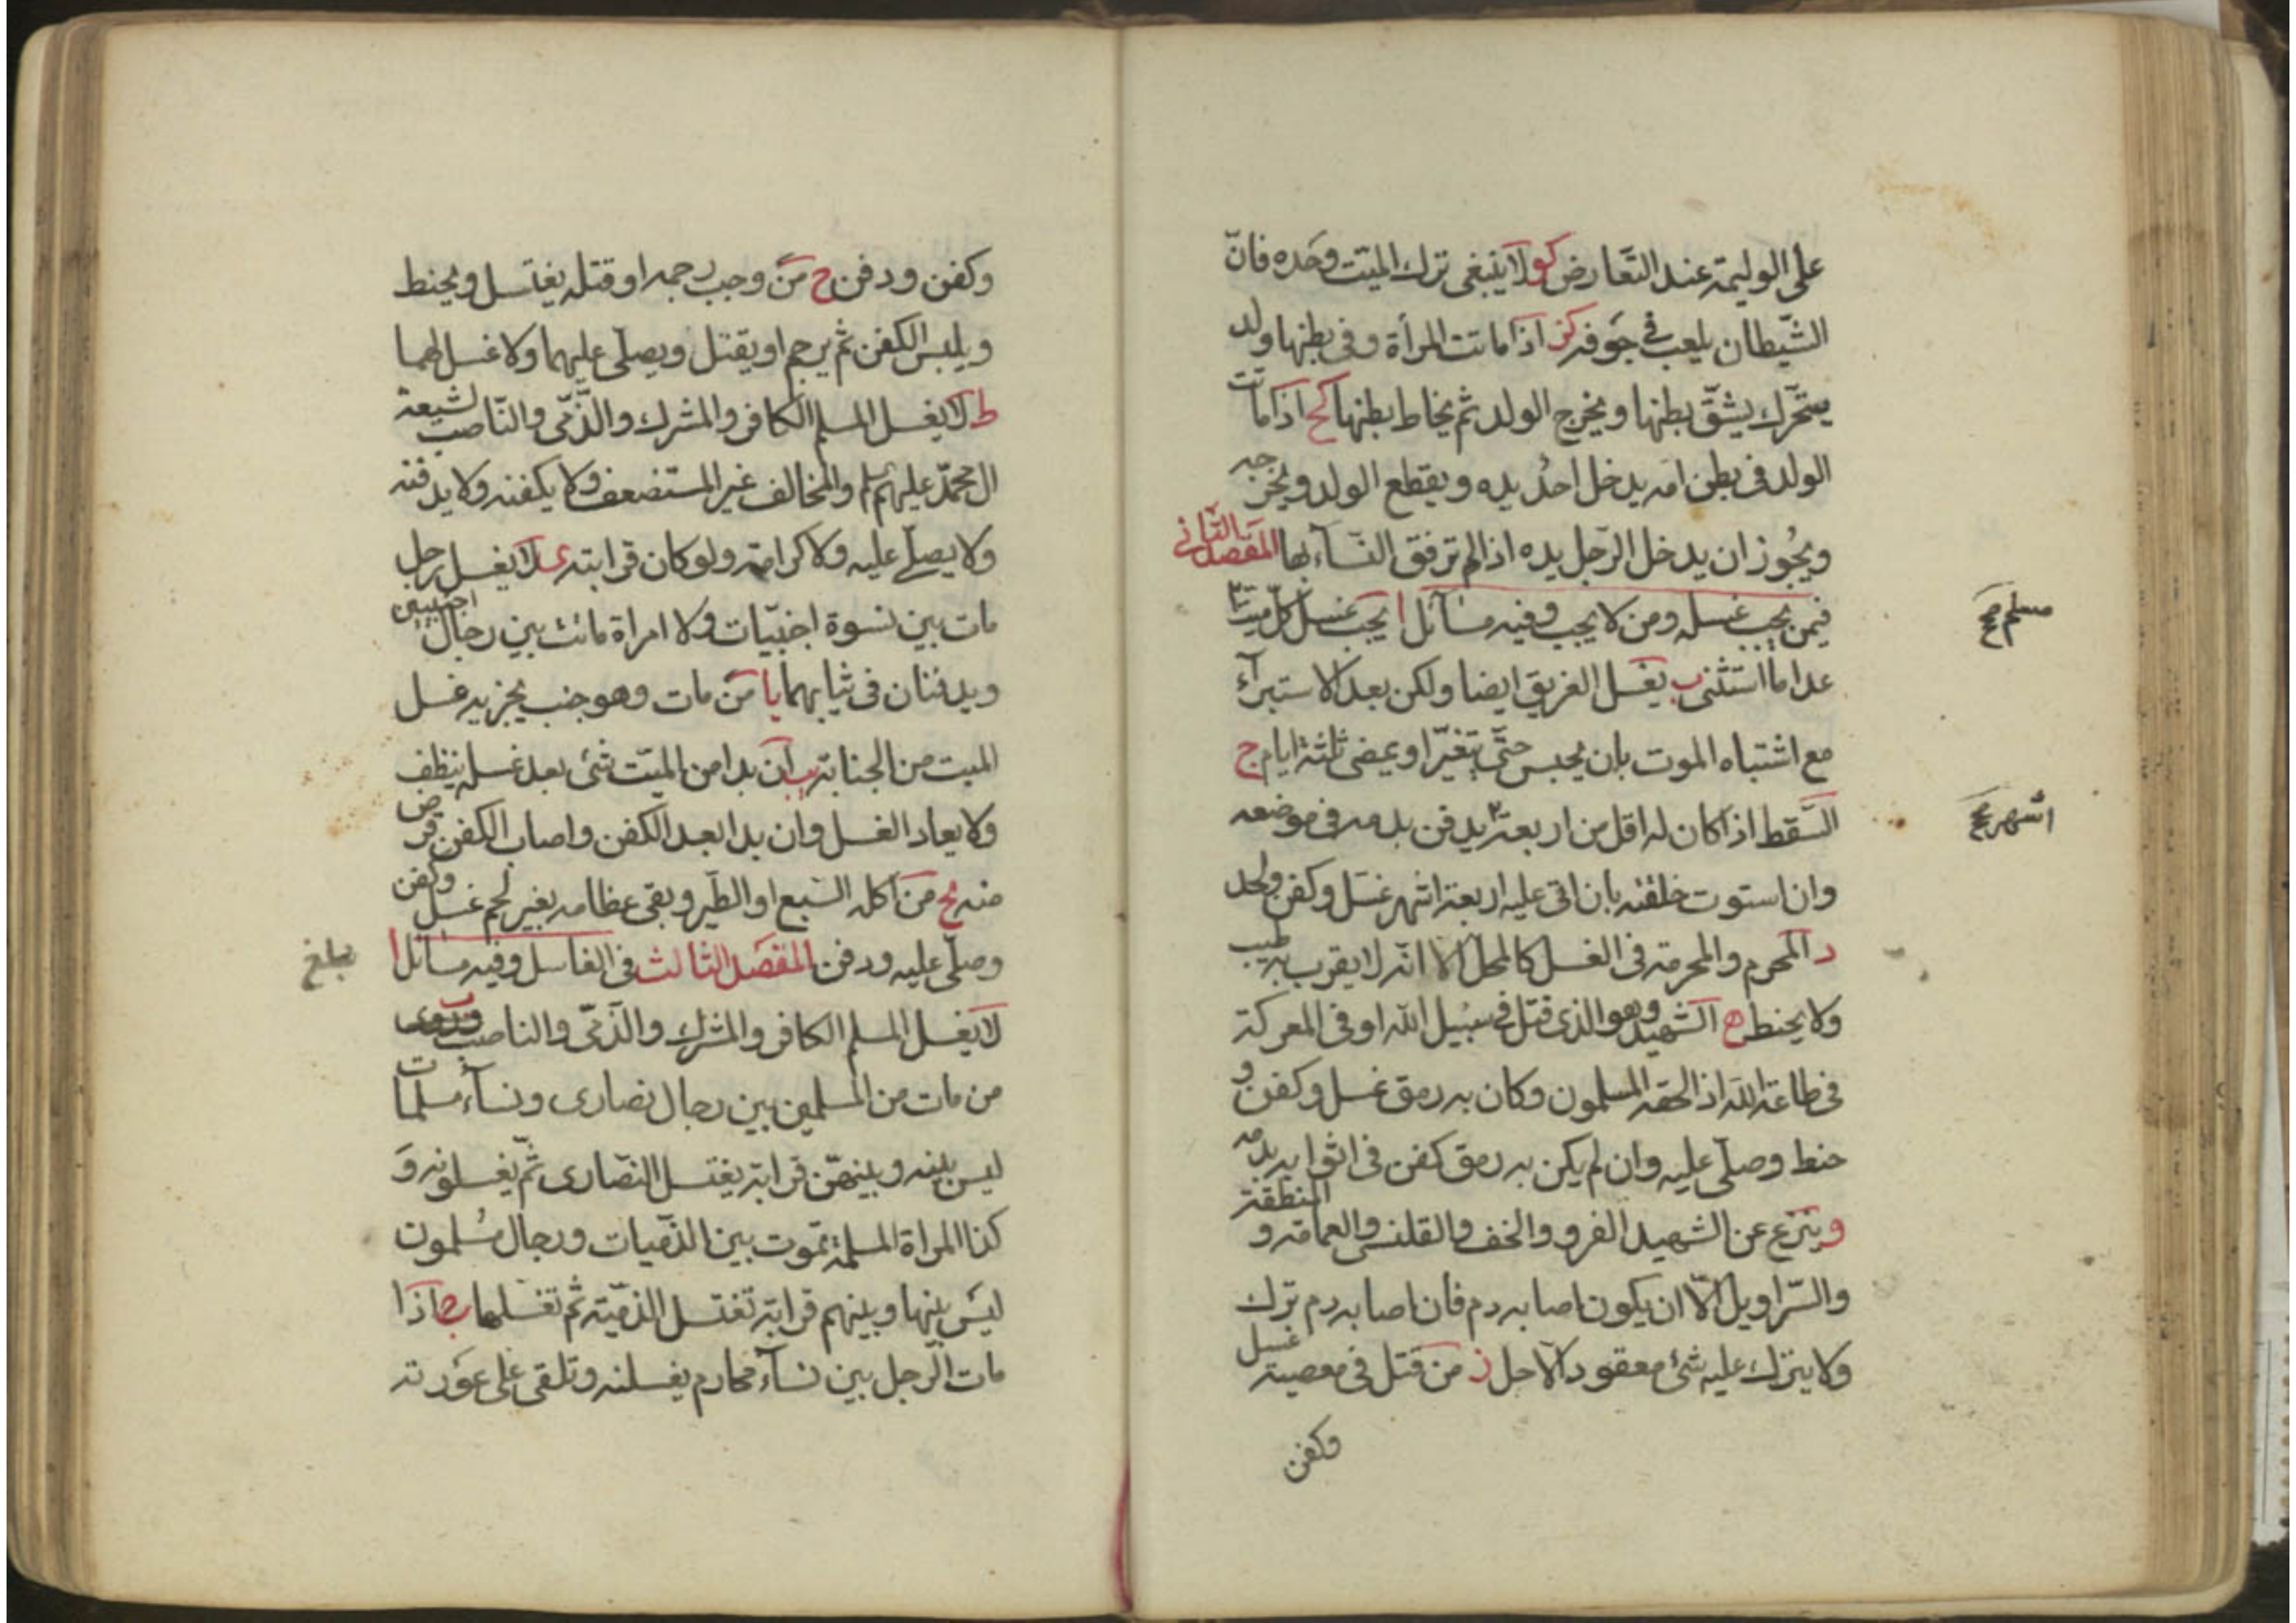 على الوليمة عند التعارض كو لا ينبغى ترك الميّت وحده فانّ
الشّيطان يلعب فى جوفه كز اذا ماتت المرأة وفى بطنها ولد
يتحرّك يشقّ بطنها ويخرج الولد ثم يخاط بطنها كح اذا مات
الولد فى بطن امه يدخل احد يده ويقطع الولد ويخرجه
ويجوز ان يدخل الرّجل يده اذا لم ترفق النّسآء لها المفصل الثانى
فيمن يجب غسله ومن لا يجب وفيه مسائل ا يجب غسل كلّ ميت
مسلم صح
عدا ما استثنى ب يغسل الغريق ايضا ولكن بعد الاستبرآء
مع اشتباه الموت بان يحبس حتّى يتغيّر او يمضى ثلثة ايام ج
السّقط اذا كان له اقل من اربعة يدفن بدمه فى موضعه
اشهر صح
وان استوت خلقته بان اتى عليه اربعة اشهر غسل وكفن ولحد
د المحرم والمحرمة فى الغسل كالمحل الا انّه لا يقرب به طيب
ولا يحنط ه الشهيد وهو الذى قتل فى سبيل الله او فى المعركة
فى طاعة الله اذا لحقه المسلمون وكان به رمق غسل وكفن و
حنط وصلّى عليه وان لم يكن به رمق كفن فى اثوابه بدمه
و ينزع عن الشهيد الفرو والخف والقلنس والعمامة و المنطقة
والسّراويل الّا ان يكون اصابه دم فان اصابه دم ترك
ولا يترك عليه شئ معقود الّا حل ز من قتل فى معصية غسل
وكفن
وكفن ودفن ح من وجب رجمه او قتله يغتسل ويحنط
ويلبس الكفن ثم يرجم او يقتل ويصلّى عليهما ولا غسل لهما
ط لا يغسل المسلم الكافر والمشرك والذّمّى والنّاصب لشيعة
ال محمّد عليهم والمخالف غير المستضعف ولا يكفنه ولا يدفنه
ولا يصلّى عليه ولا كرامة ولو كان قرابته ى لا يغسل رجل
مات بين نسوة اجنبيّات ولا امراة ماتت بين رجال اجنبيين
ويدفنان فى ثيابهما يا من مات وهو جنب يجزيه غسل
الميت من الجنابة يب ان بدا من الميّت شئ بعد غسله ينظف
ولا يعاد الغسل وان بدا بعد الكفن واصاب الكفن قرض
منه يج من اكله السّبع او الطّير وبقى عظامه بغير لحم غسل وكفن
وصلّى عليه ودفن المفصل الثالث فى الغاسل وفيه مسائل ا
بلغ
لا يغسل المسلم الكافر والمشرك والذّمّى والناصب ب
من مات من المسلمين بين رجال نصارى ونسآء مسلمات
ليس بينه وبينهنّ قرابة يغتسل النّصارى ثمّ يغسلونه و
كذا المراة المسلمة تموت بين الذّميات ورجال مسلمون
ليس بينها وبينهم قرابة تغتسل الذميّة ثم تغسلها ج اذا
مات الرّجل بين نسآء محارم يغسلنه وتلقى على عورته